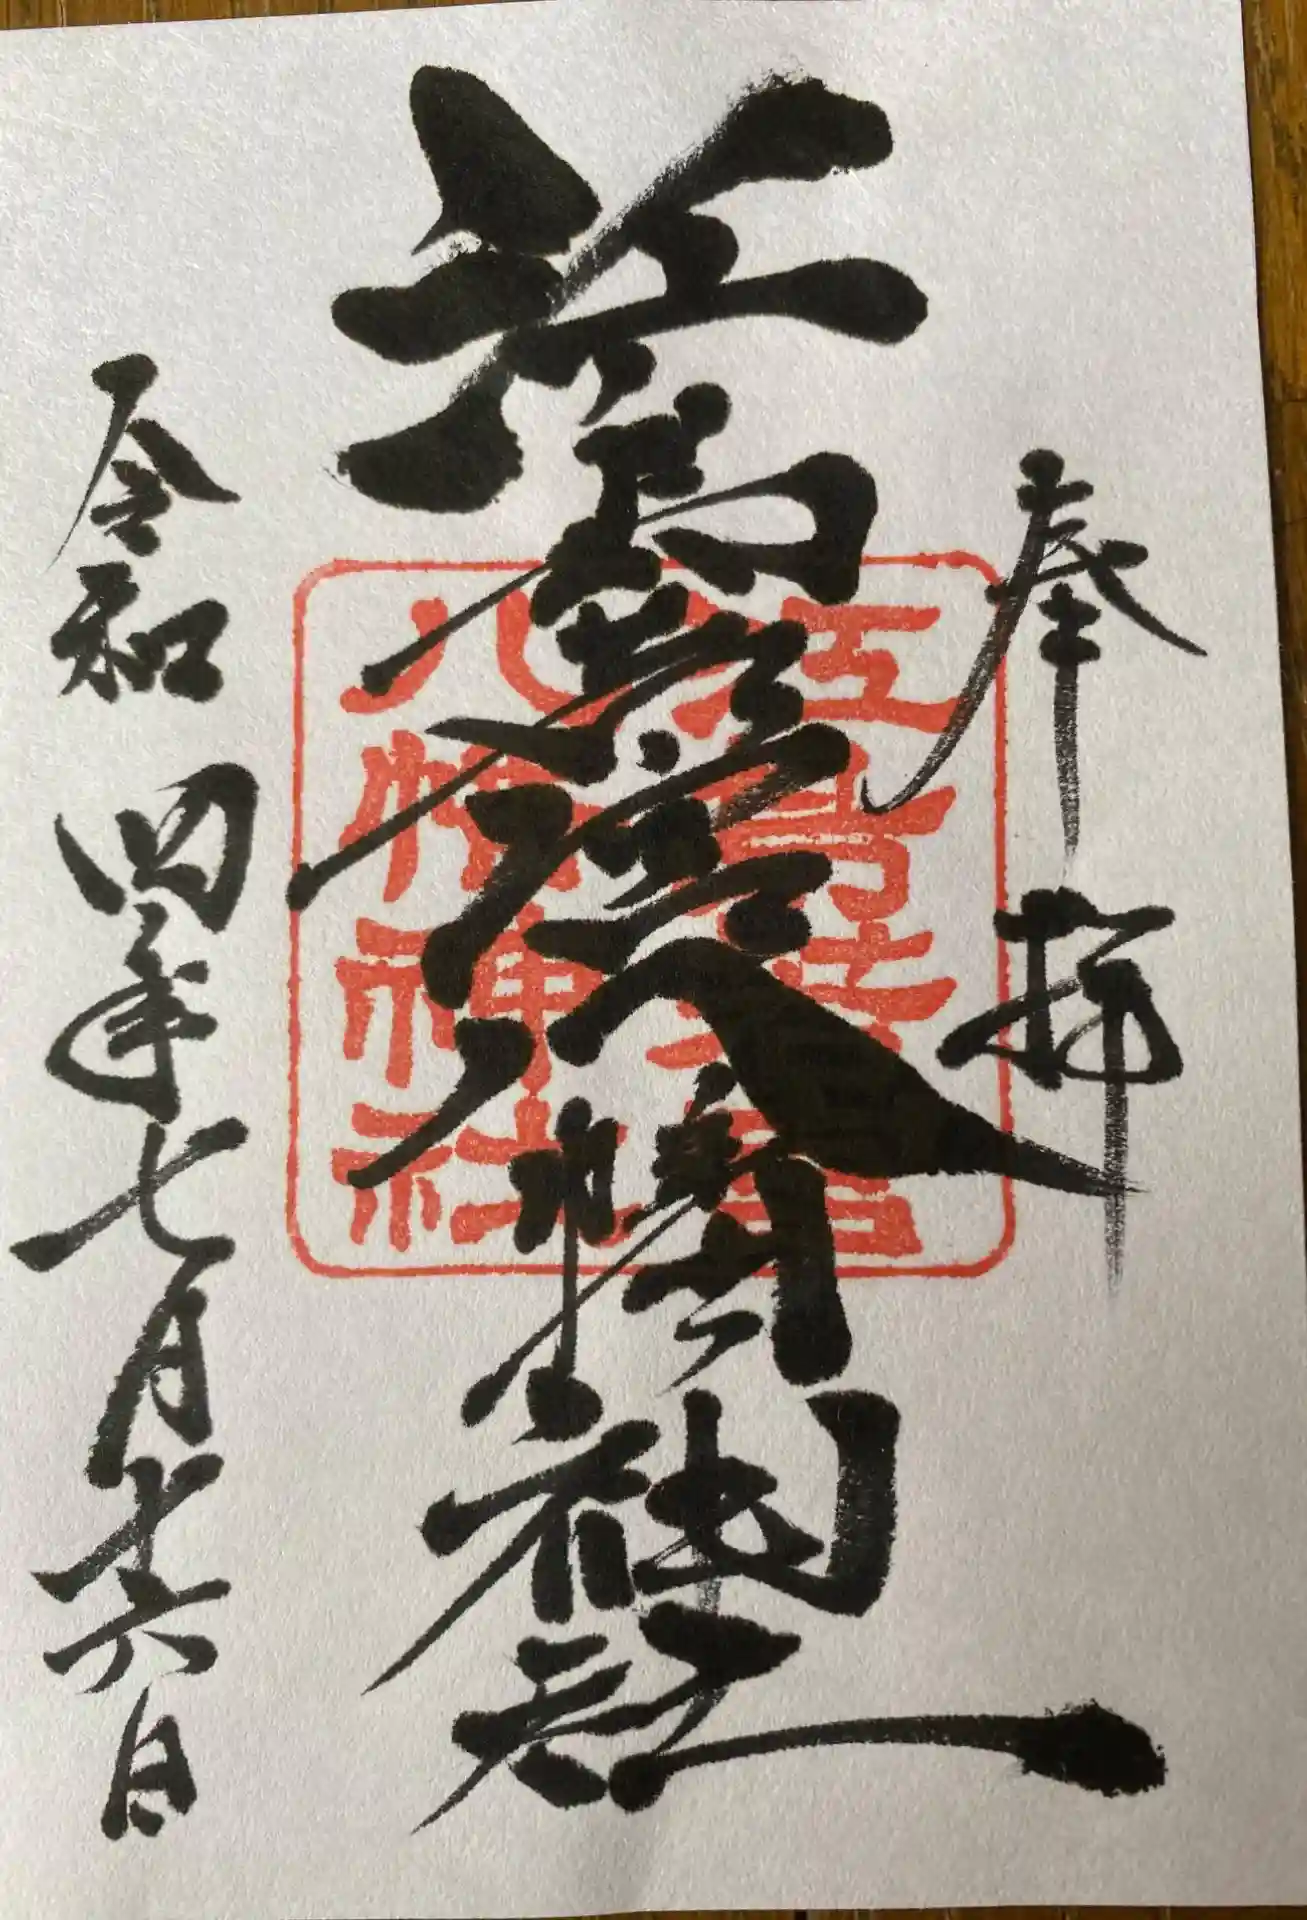 奉拝
江島若宮八幡神社
江島若宮
八幡神社
令和四年七月十六日